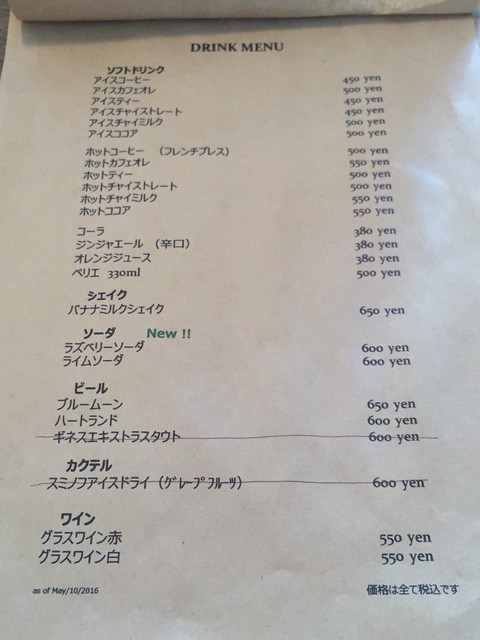 DRINK MENU
ソフトドリンク
アイスコーヒー 450 yen
アイスカフェオレ 500 yen
アイスティー 450 yen
アイスチャイストレート 450 yen
アイスチャイミルク 500 yen
アイスココア 500 yen
ホットコーヒー (フレンチプレス) 500 yen
ホットカフェオレ 550 yen
ホットティー 500 yen
ホットチャイストレート 500 yen
ホットチャイミルク 550 yen
ホットココア 550 yen
コーラ 380 yen
ジンジャエール (辛口) 380 yen
オレンジジュース 380 yen
ペリエ 330ml 500 yen
シェイク
バナナミルクシェイク 650 yen
ソーダ New !!
ラズベリーソーダ 600 yen
ライムソーダ 600 yen
ビール
ブルームーン 650 yen
ハートランド 600 yen
ギネスエキストラスタウト 600 yen
カクテル
スミノフアイスドライ (グレープフルーツ) 600 yen
ワイン
グラスワイン赤 550 yen
グラスワイン白 550 yen
as of May/10/2016 価格は全て税込です